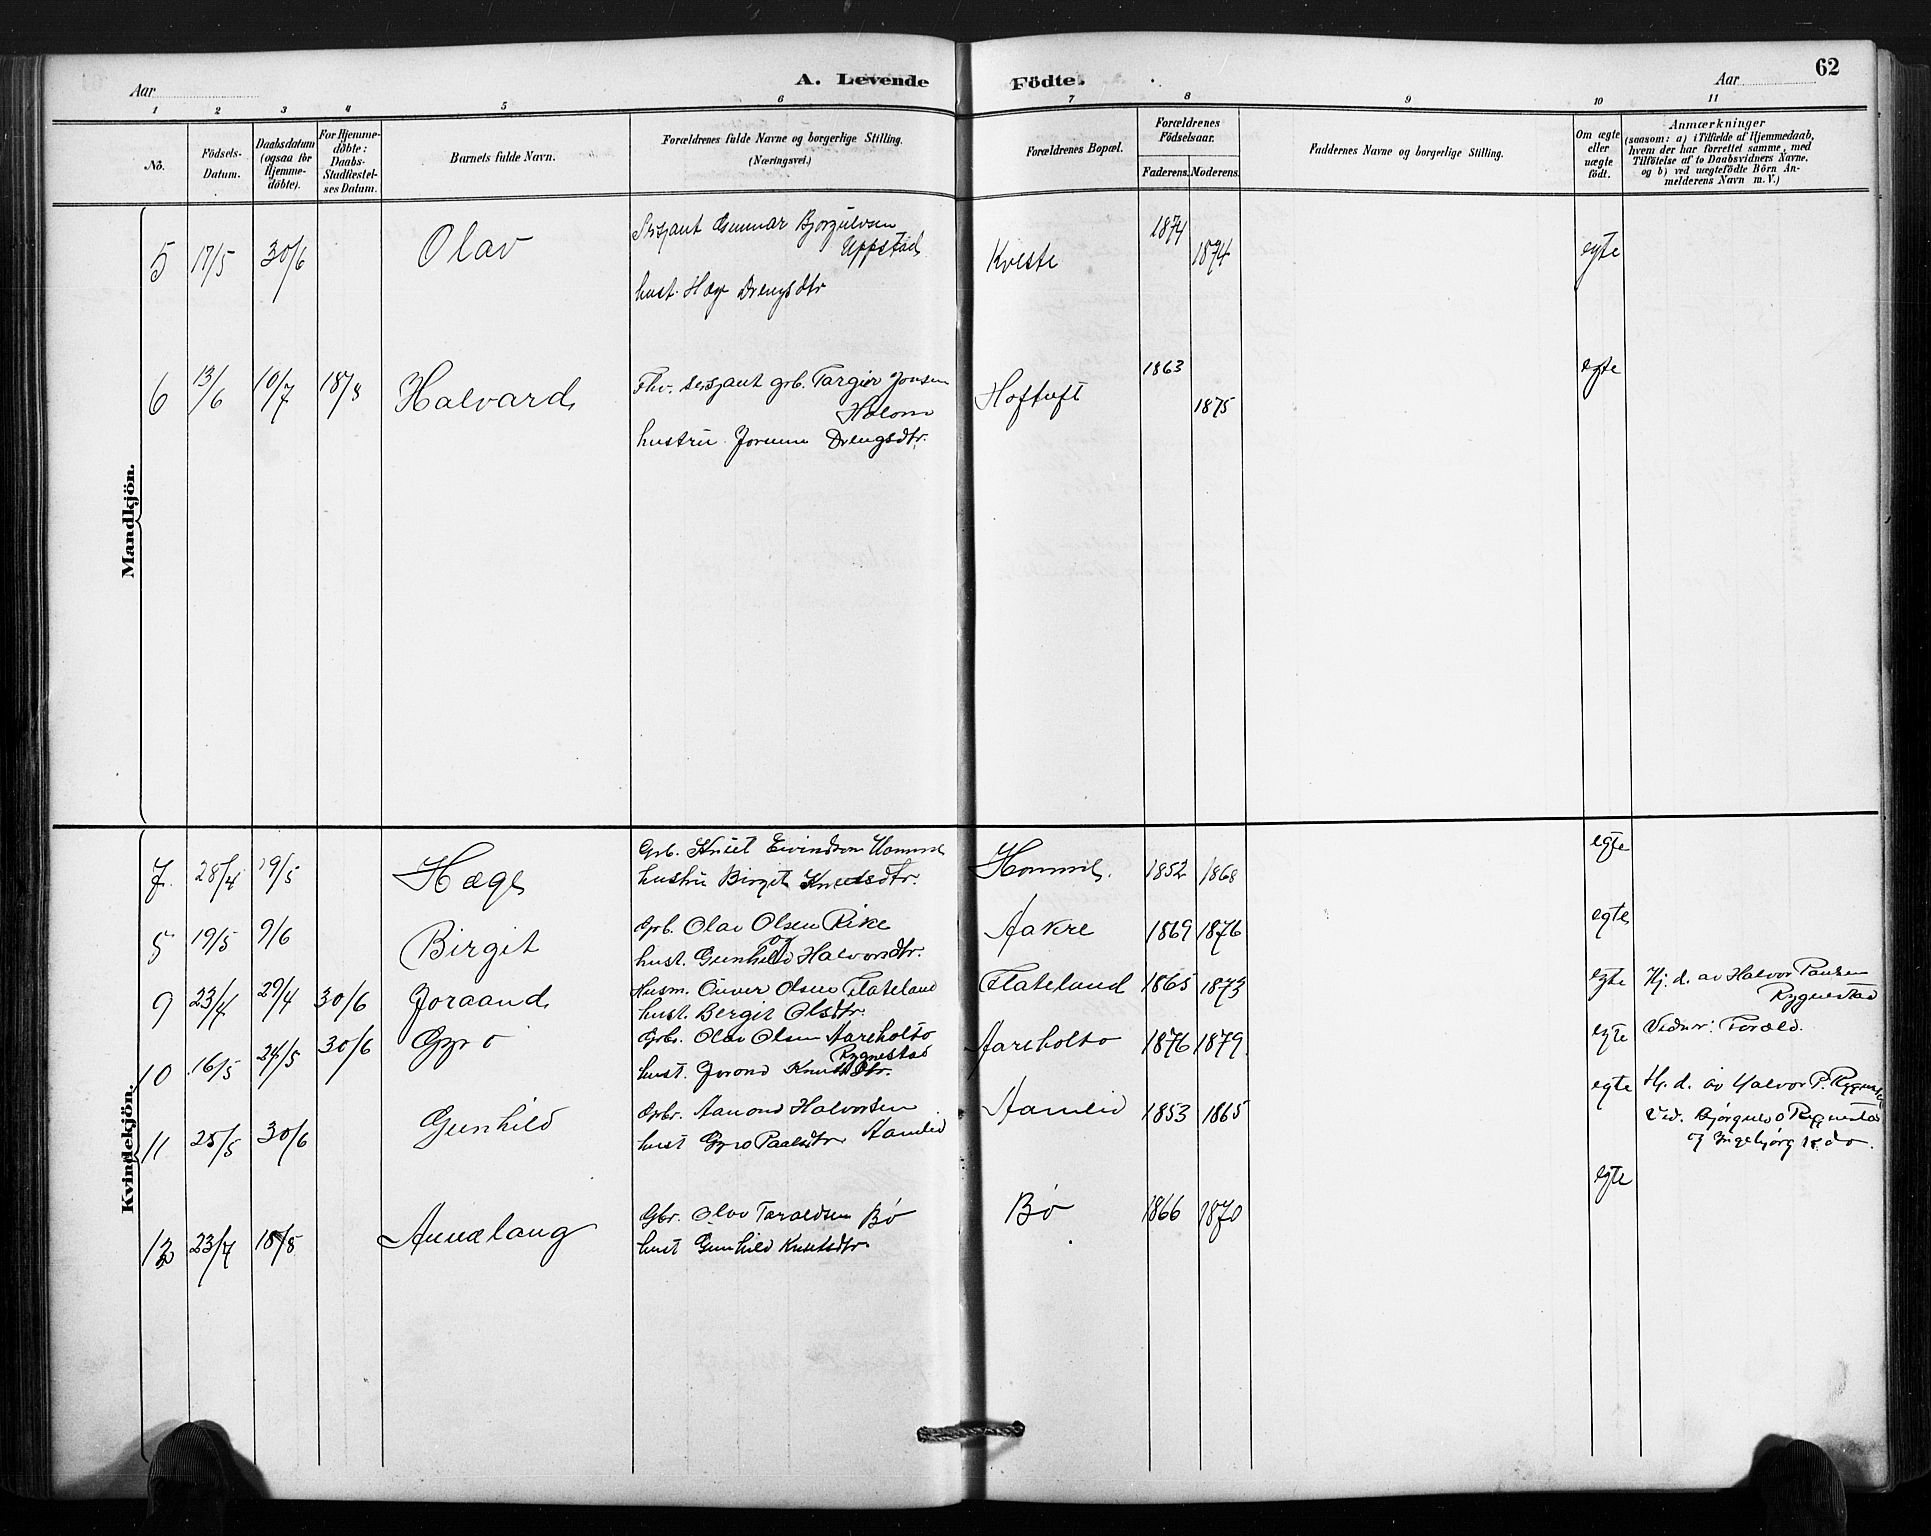 Aar
A. Levende
Födte.
Aar
62
1 2 3 4 5 6 7 8 9 10 11
Nö.
Födsels-
Datum.
Daabsdatum
(ogsaa för
Hjemme-
döbte).
For Hjemme-
döbte:
Daabs-
Stadfæstel-
ses Datum.
Barnets fulde Navn.
Forældrenes fulde Navne og borgerlige Stilling.
(Næringsvei.)
Forældrenes Bopæl.
Forældrenes
Födselsaar.
Faderens. Moderens.
Faddernes Navne og borgerlige Stilling.
Om ægte
eller
uægte
födt.
Anmærkninger
(saasom: a) i Tilfælde af Hjemmedaab,
hvem der har forrettet samme, med
Tilföielse af to Daabsvidners Navne,
og b) ved uægtefödte Börn An-
melderens Navn m. V.)
Mandkjön.
5 17/5 30/6 Olav
Sersjant Gunnar Bjorgulvsen
Uppstad
hust. Hæge Drengsdtr
Kveste 1874 1874 egte
6 13/6 10/7 18/8 Halvard
Fhv. sersjant grb. Targier Jonsen
Holom
hustru Jorunn Drengsdtr.
Hoftuft 1863 1875 egte
Kvindekjön.
7 28/4 19/5 Hæge
Grb. Knut Eivindson Hommel
hustru Birgit Knutsdtr.
Hommel. 1852 1868 egte
5 19/5 9/6 Birgit
Grb. Olav Olsen Rike
hust. Gunhild Halvorsdtr.
Aakre 1869 1876 egte
9 23/4 29/4 30/6 Joraand
Husm. Ånver Olsen Flateland
hust. Bergit Olsdtr.
Flateland 1865 1873 egte
Hj. d. av Halvor Paulsen
Rygnestad
Vidner: Foræld.
10 16/5 24/5 30/6 Gyro
Grbr. Olav Olsen Aareholto
Rygnestad
hust. Jorond Knutsdtr.
Aareholto 1876 1879 egte
Hj. d. av Halvor P. Rygnestad
Vid. Bjørgulv O Rygnestad
og Ingebjørg do.
11 25/5 30/6 Gunhild
Grbr. Aamond Halvorsen
Aamlid
hust Gyro Paalsdtr
Aamlid 1853 1865 egte
12 23/7 18/8 Annelaug
Gbr. Olav Taraldsen Bø
hust Gunhild Knutsdtr.
Bø 1866 1870 egte